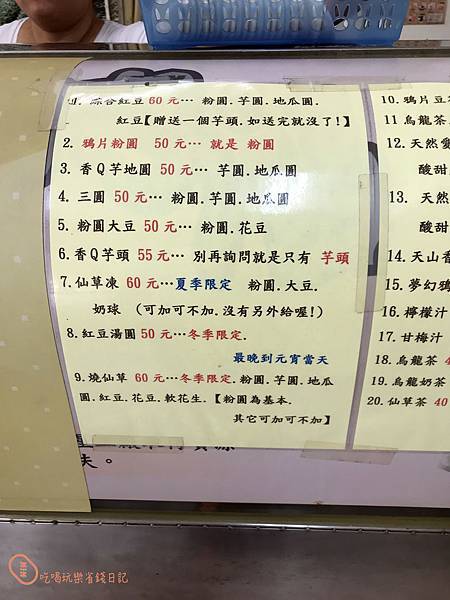 1. 綜合紅豆 60 元… 粉圓.芋圓.地瓜圓.
紅豆【贈送一個芋頭.如送完就沒了!】
2. 鴉片粉圓 50 元… 就是 粉圓
3. 香Q芋地圓 50 元… 芋圓.地瓜圓
4. 三圓 50 元… 粉圓.芋圓.地瓜圓
5. 粉圓大豆 50 元… 粉圓.花豆
6. 香Q芋頭 55 元… 別再詢問就是只有 芋頭
7. 仙草凍 60 元…夏季限定 粉圓.大豆.
奶球 (可加可不加.沒有另外給喔!)
8. 紅豆湯圓 50 元…冬季限定.
最晚到元宵當天
9. 燒仙草 60 元…冬季限定.粉圓.芋圓.地瓜
圓.紅豆.花豆.軟花生.【粉圓為基本.
其它可加可不加】
10. 鴉片豆
11 烏龍茶
12. 天然愛
酸甜
13. 天然
酸甜
14. 天山香
15. 夢幻鴉
16. 檸檬汁
17. 甘梅汁
18. 烏龍茶 4
19. 烏龍奶茶
20. 仙草茶 40
夫。
吃喝玩樂省錢日記